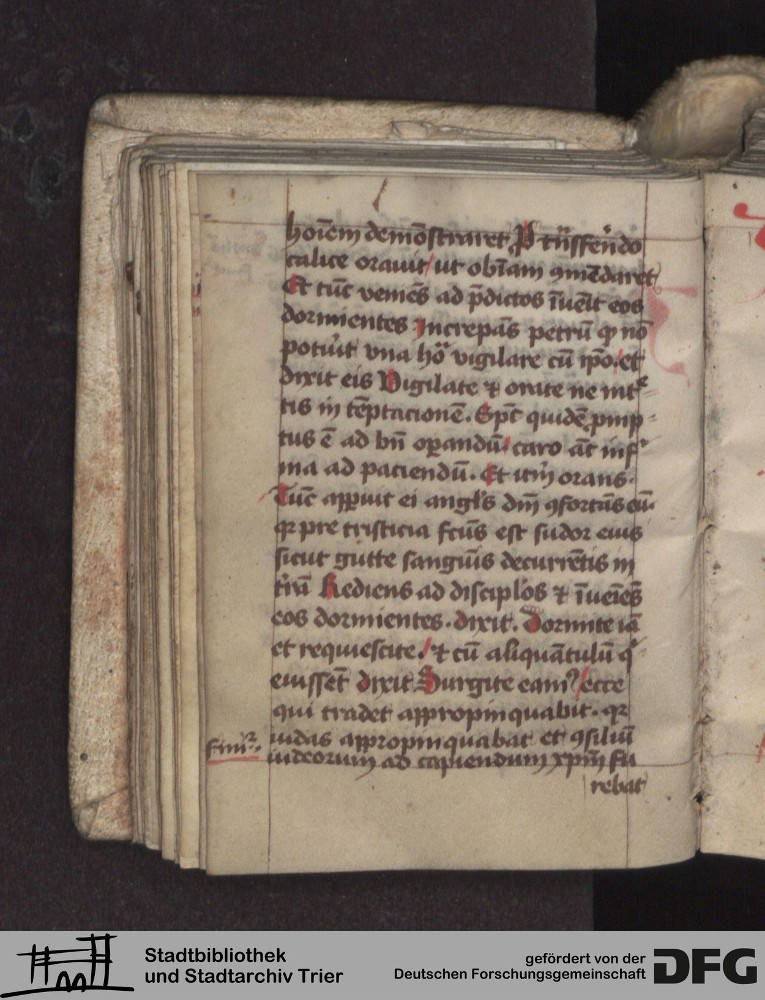 hoīem demōstraret P trāsferēdo
calice orauit / ut obīam ꝯmēdaret
Et tūc veniēs ad p̄dictos īueīt eos
dormientes Increpās petrū ꝙ nō
potuit vna hoͣ vigilare cū ipō. et
dixit eis Vigilate ⁊ orate ne int
tis in tēptacionē. Spc quidē pmp
tus ē ad bn̄ oꝑandū / caro āt inf
ma ad paciendū. Et itm̄ orans.
Tūc apꝑuit ei angl's dn̄i ꝯfortās eū.
qꝛ pre tristicia fcūs est sudor eius
sicut gutte sanguīs decurrētis in
trā Rediens ad discipl'os ⁊ īueiēs
eos dormientes. dixit. Dormite iā
et requiescite. / ⁊ cū aliquātulū q
euissēt dixit Surgite eamꝰ / ecce
qui tradet appropinquabit. qꝛ
iudas appropinquabat et ꝯsiliū
iudeorum ad capiendum xp̄m fu
rebat
Stadtbibliothek
und Stadtarchiv Trier
gefördert von der
Deutschen Forschungsgemeinschaft
DFG